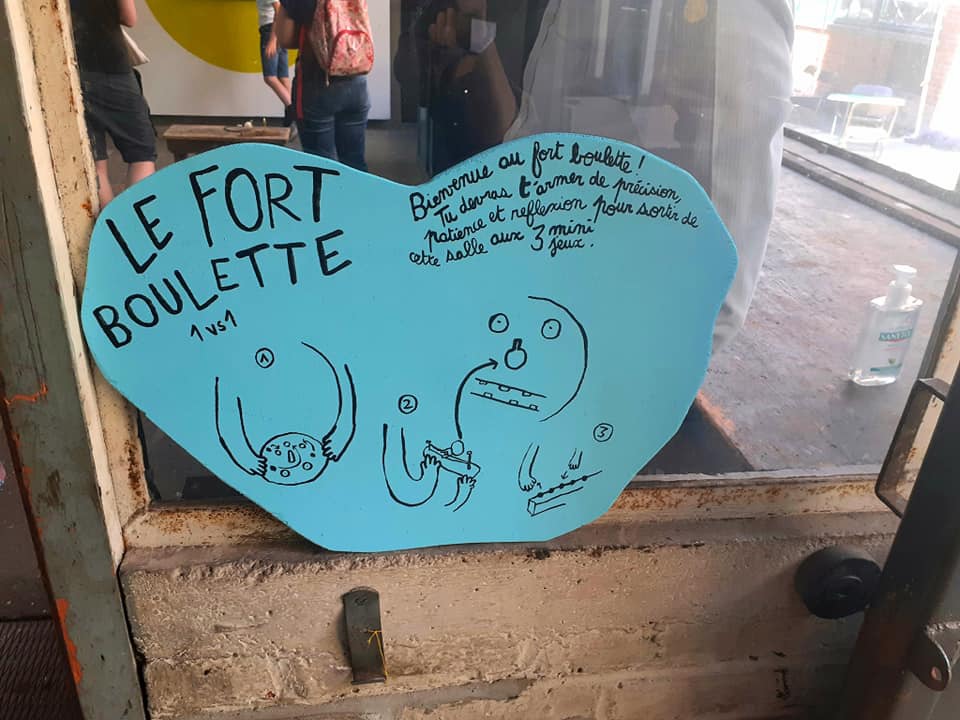 LE FORT
BOULETTE
1 vs 1
Bienvenue au fort boulette !
Tu devras t'armer de précision,
patience et reflexion pour sortir de
cette salle aux 3 mini
jeux.
1
2
3
SANYTOL